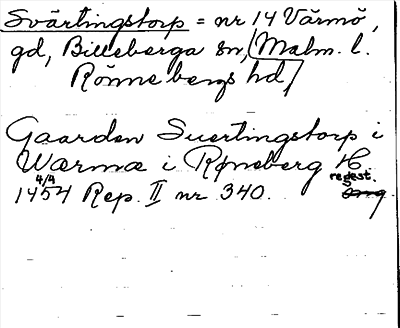 Svärtingstorp = nr 14 Värmö,
gd, Billeberga sn, (Malm. l.
Rönnebergs hd)
Gaarden Suertingstorp i
Wærmæ i Røneberg H
regest.
4/4
1454 Rep. II nr 340.